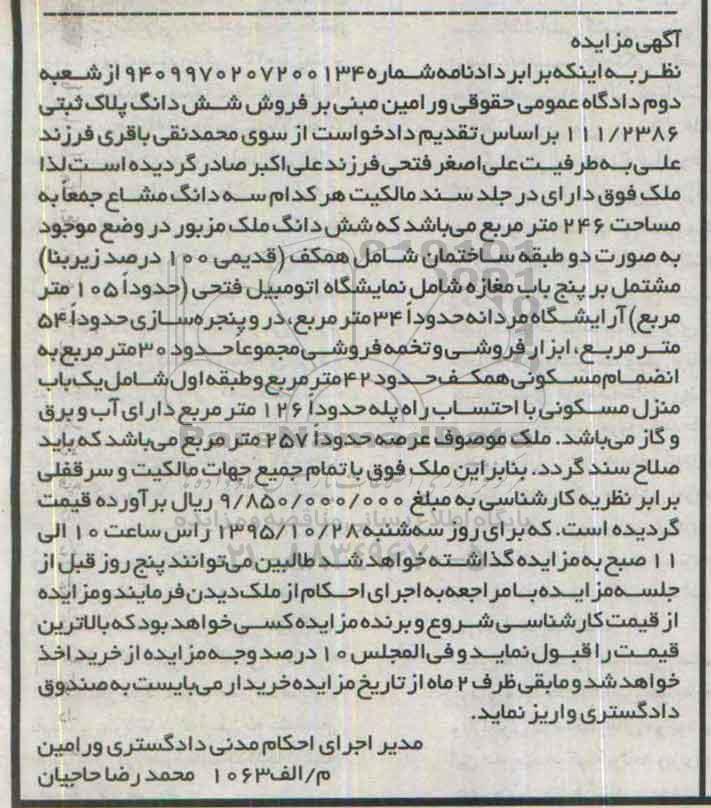 آگهی مزایده
نظر به اینکه برابر دادنامه شماره ۹۴۰۹۹۷۰۲۰۷۲۰۰۱۳۴ از شعبه
دوم دادگاه عمومی حقوقی ورامین مبنی بر فروش شش دانگ پلاک ثبتی
۱۱۱/۲۳۸۶ بر اساس تقدیم دادخواست از سوی محمدنقی باقری فرزند
علی به طرفیت علی اصغر فتحی فرزند علی اکبر صادر گردیده است لذا
ملک فوق دارای در جلد سند مالکیت هر کدام سه دانگ مشاع جمعاً به
مساحت ۲۴۶ متر مربع می‌باشد که شش دانگ ملک مزبور در وضع موجود
به صورت دو طبقه ساختمان شامل همکف (قدیمی ۱۰۰ درصد زیربنا)
مشتمل بر پنج باب مغازه شامل نمایشگاه اتومبیل فتحی (حدوداً ۱۰۵ متر
مربع) آرایشگاه مردانه حدوداً ۳۴ متر مربع، در و پنجره سازی حدوداً ۵۴
متر مربع، ابزار فروشی و تخمه فروشی مجموعا حدود ۳۰ متر مربع به
انضمام مسکونی همکف حدود ۴۲ متر مربع و طبقه اول شامل یک باب
منزل مسکونی با احتساب راه پله حدوداً ۱۲۶ متر مربع دارای آب و برق
و گاز می‌باشد. ملک موصوف عرصه حدوداً ۲۵۷ متر مربع می‌باشد که باید
صلاح سند گردد. بنابر این ملک فوق با تمام جمیع جهات مالکیت و سرقفلی
برابر نظریه کارشناسی به مبلغ ۹/۸۵۰/۰۰۰/۰۰۰ ریال برآورده قیمت
گردیده است. که برای روز سه‌شنبه ۱۳۹۵/۱۰/۲۸ راس ساعت ۱۰ الی
۱۱ صبح به مزایده گذاشته خواهد شد طالبین می‌توانند پنج روز قبل از
جلسه مزایده با مراجعه به اجرای احکام از ملک دیدن فرمایند و مزایده
از قیمت کارشناسی شروع و برنده مزایده کسی خواهد بود که بالاترین
قیمت را قبول نماید و فی المجلس ۱۰ درصد وجه مزایده از خرید اخذ
خواهد شد و مابقی ظرف ۲ ماه از تاریخ مزایده خریدار می‌بایست به صندوق
دادگستری واریز نماید.
مدیر اجرای احکام مدنی دادگستری ورامین
م/الف ۱۰۶۳ محمد رضا حاجیان